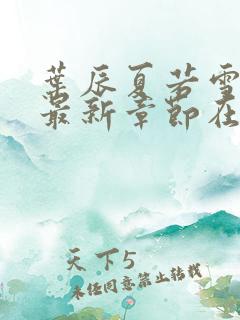 葉辰夏若雪
最新章節在
天下5
未经同意禁止转载